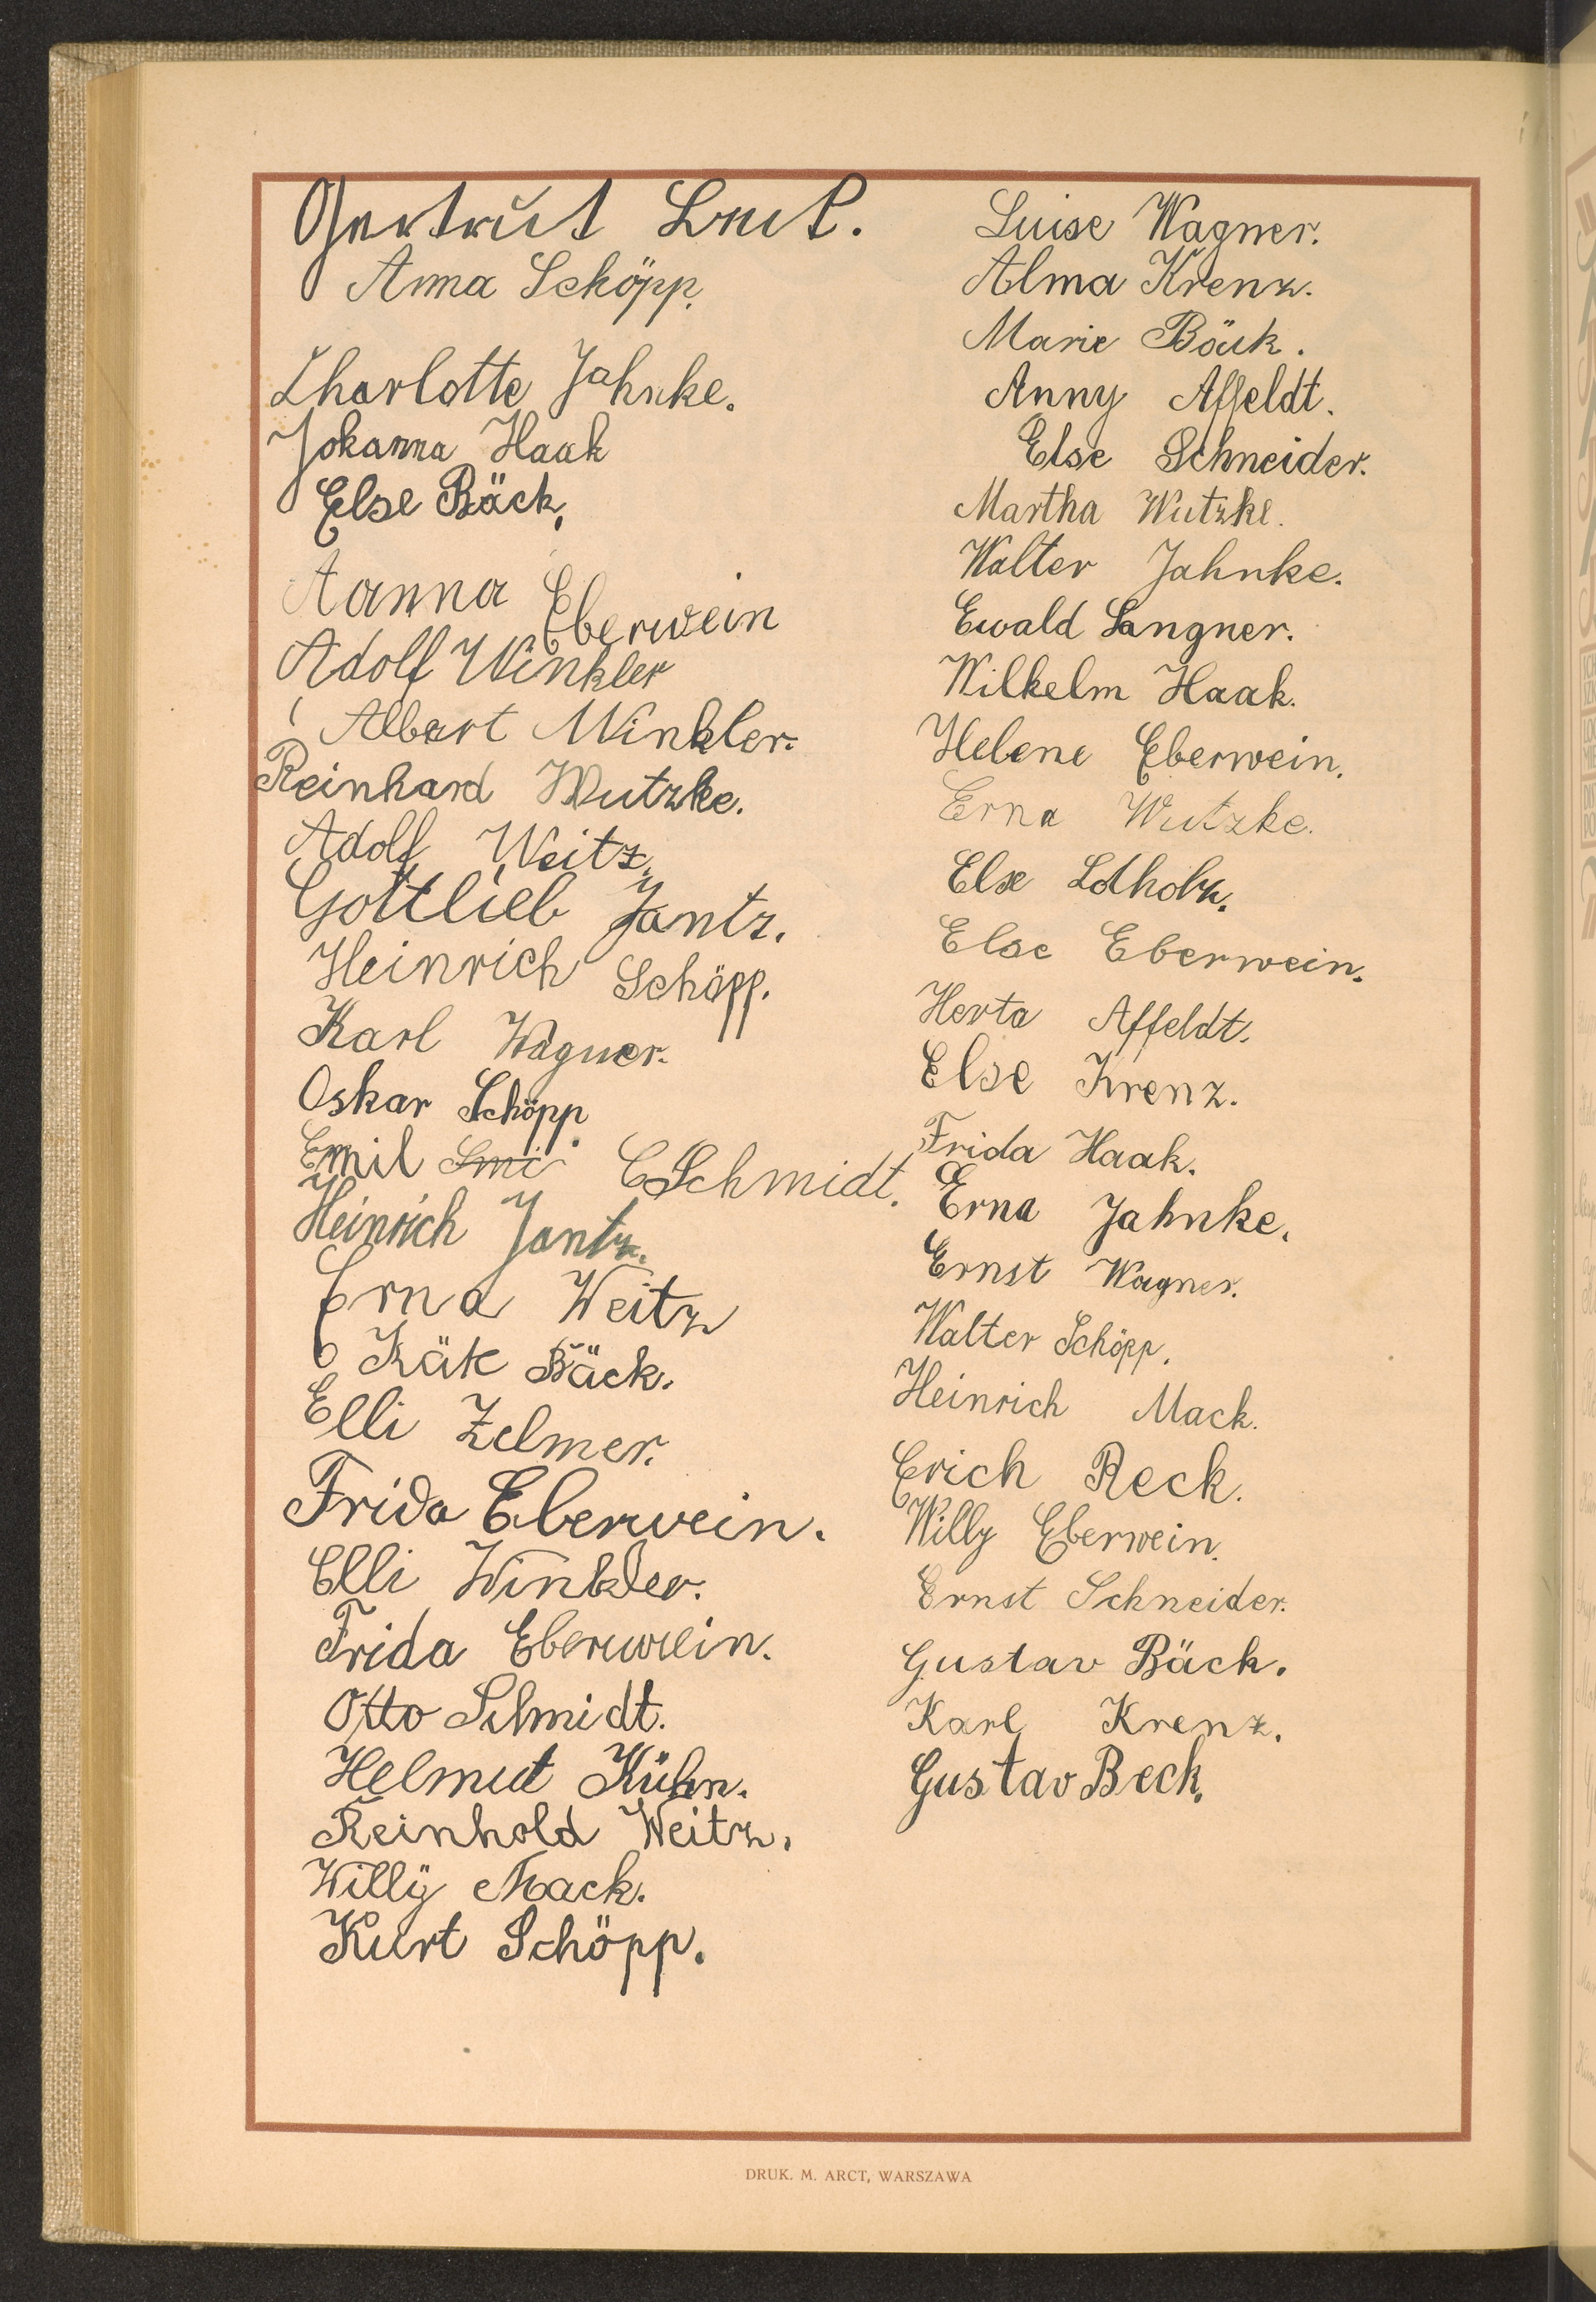 Gertrut
Anna Schöpp.
Charlotte Jahnke.
Johanna Haak
Else Bäck.
Aanna Eberwein
Adolf Winkler
Albert Winkler.
Reinhard Wutzke.
Adolf Weitz.
Gottlieb Jantz.
Heinrich Schöpp.
Karl Wagner.
Oskar Schöpp.
Emil Smi Schmidt.
Heinrich Jantz.
Erna Weitz
Käte Bäck.
Elli Zelmer.
Frida Eberwein.
Elli Winkler.
Frida Eberwein.
Otto Schmidt.
Helmut Kühn.
Reinhold Weitz.
Willÿ Mack.
Kurt Schöpp.
Luise Wagner.
Alma Krenz.
Marie Bäck.
Anny Affeldt.
Else Schneider.
Martha Wutzke.
Walter Jahnke.
Ewald Langner.
Wilhelm Haak.
Helene Eberwein.
Erna Wutzke.
Else Lotholz.
Else Eberwein.
Herta Affeldt.
Else Krenz.
Frida Haak.
Erna Jahnke.
Ernst Wagner.
Walter Schöpp.
Heinrich Mack.
Erich Reck.
Willy Eberwein.
Ernst Schneider.
Gustav Bäck.
Karl Krenz.
Gustav Beck.
DRUK. M. ARCT, WARSZAWA